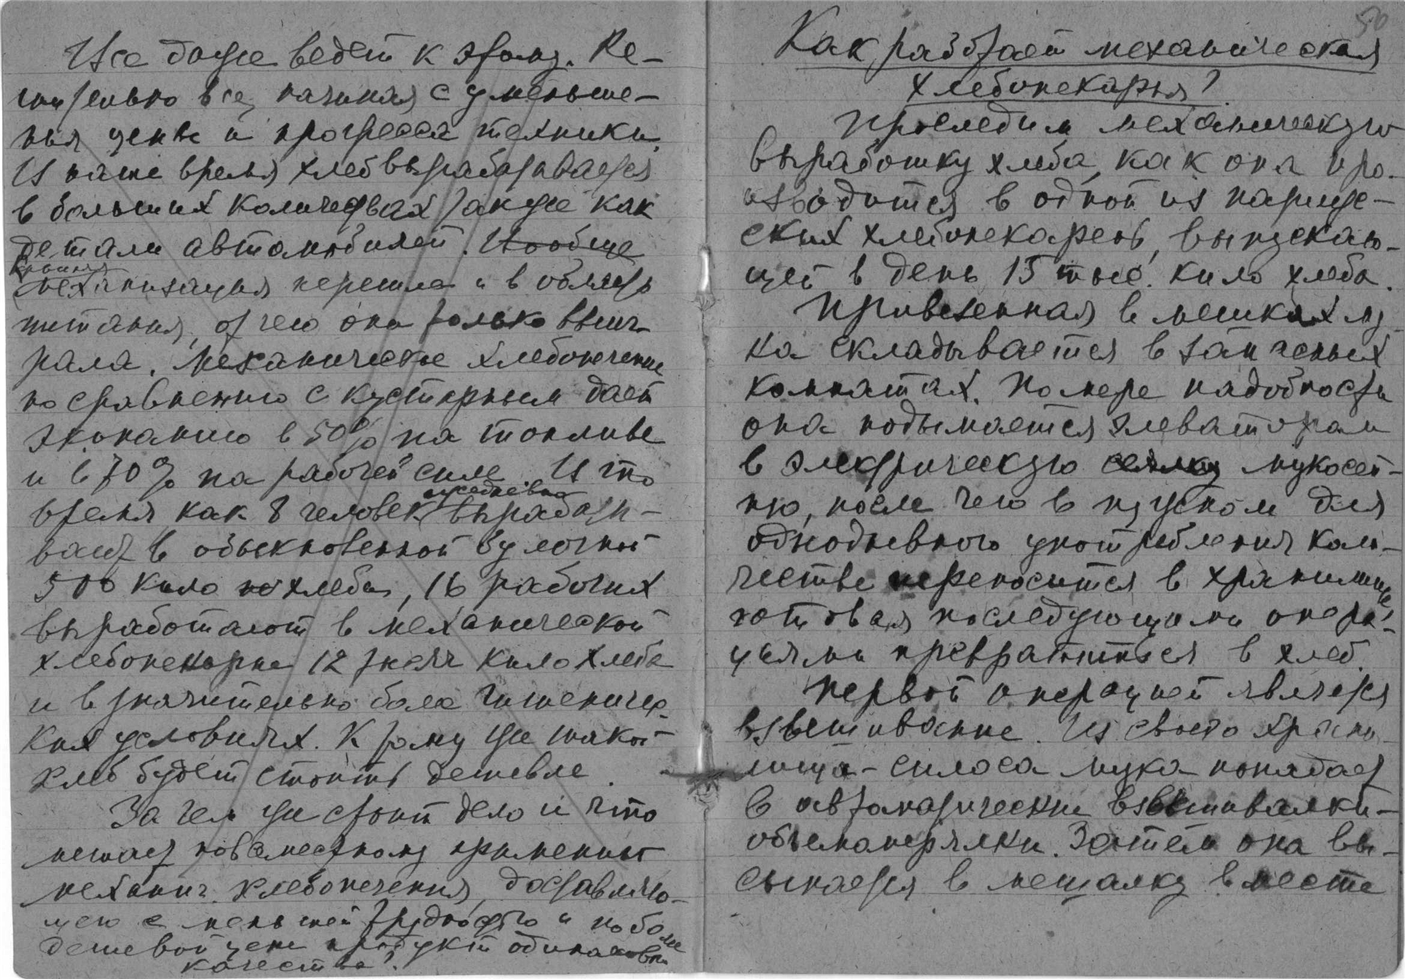 Все даже ведет к этому. Ре-
шительно все, начиная с уменьше-
ния цены и прогресса техники.
В наше время хлеб вырабатывается
в больших количествах также как
детали автомобилей. Вообще
механизация перешла и в область
питания, от чего она только выиг-
рала. Механическое хлебопечение
по сравнению с кустарным дает
экономию в 50% на топливе
и в 70% на рабочей силе. В то
время, как 8 человек ежедневно вырабаты-
вают в обыкновенной булочной
500 кило хлеба, 16 рабочих
выработают в механической
хлебопекарне 12 тысяч кило хлеба
и в значительно более гигиеничес-
ких условиях. К тому же такой
хлеб будет стоить дешевле.
За чем же стоит дело и что
мешает повсеместному применению
механич. хлебопечения, доставляю-
щего с меньшей трудностью и по более
дешевой цене продукт одинакового
качества?
50
Как работает механическая
хлебопекарня?
Проследим механическую
выработку хлеба, как она про-
изводится в одной из париж-
ских хлебопекарень, выпускаю-
щей в день 15 тыс. кило хлеба.
Привезенная в мешках му-
ка складывается в запасных
комнатах. По мере надобности
она подымается элеватором
в электрическую мукосей-
ню, после чего в нужном для
однодневного употребления коли-
честве переносится в хранилище,
готовая последующими опера-
циями превратиться в хлеб.
Первой операцией является
взвешивание. Из своего храни-
лища-силоса мука попадает
в автоматические взвешивалки-
объемомерялки. Затем она вы-
сыпается в мешалку вместе